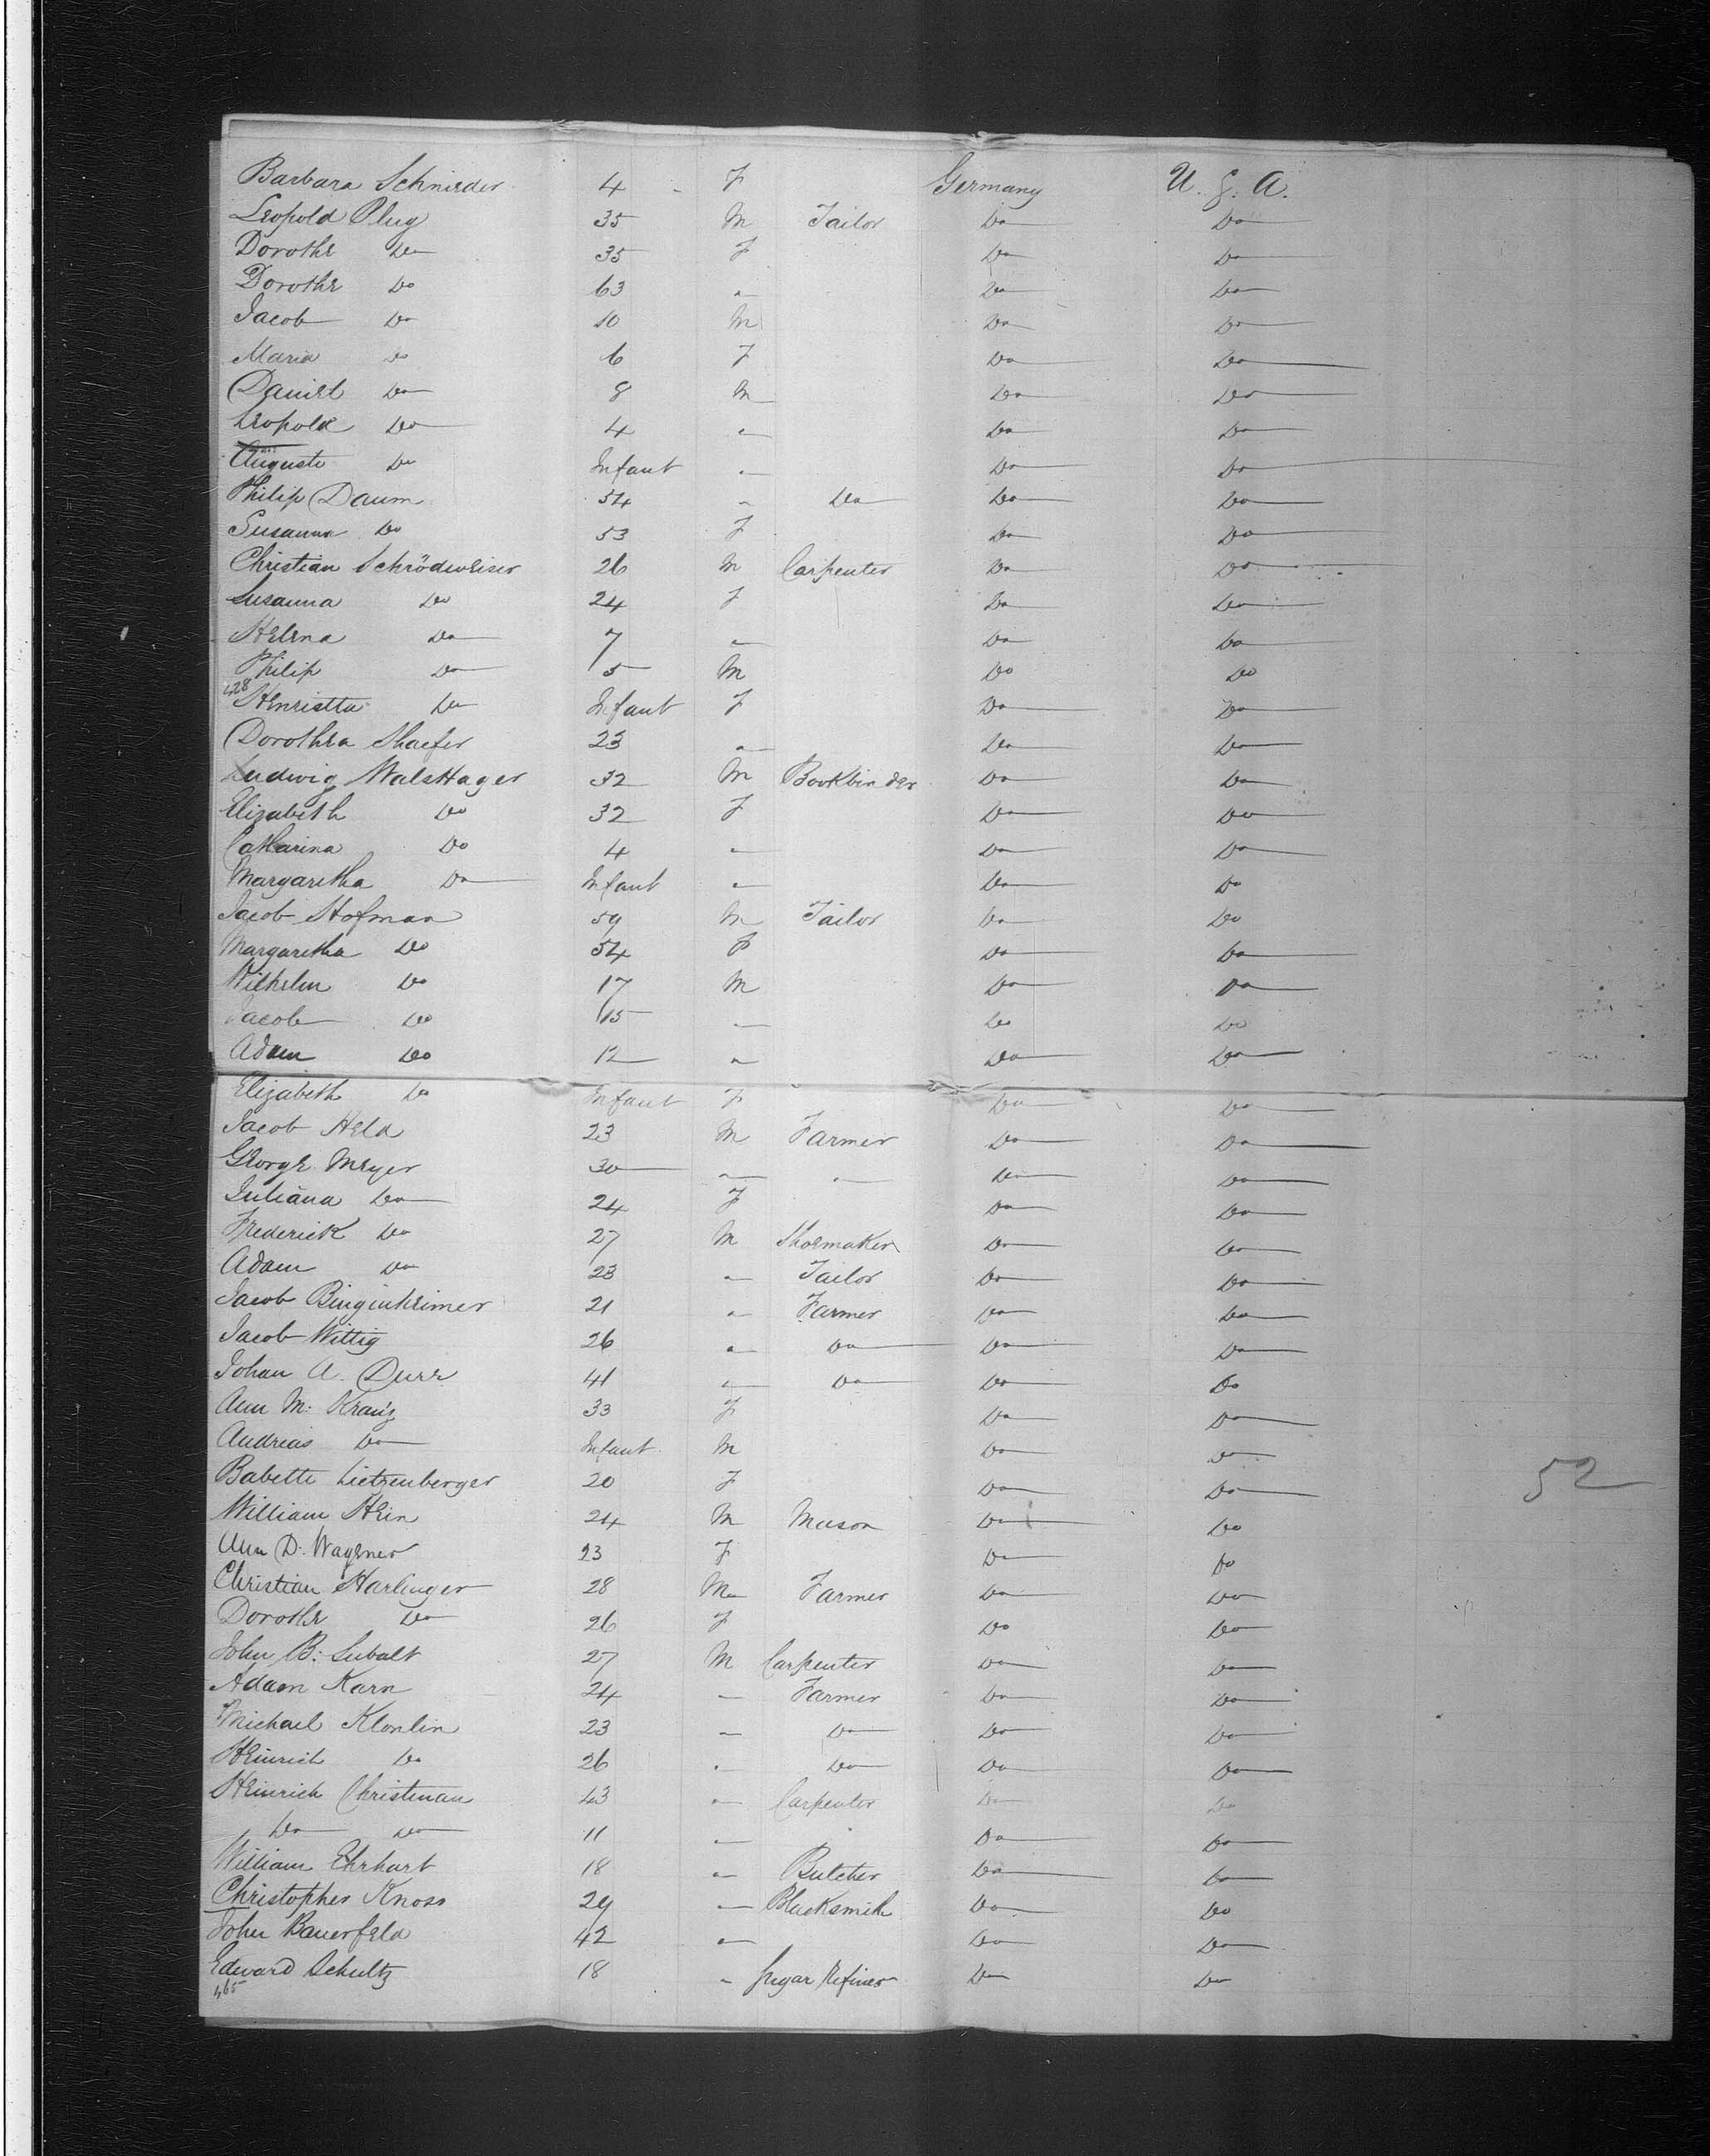 Barbara Schnieder 4 - F Germany U. S. A.
Leopold Plug 35 M Tailor Do Do
Dorothe Do 35 F Do Do
Dorothe Do 63 " Do Do
Jacob Do 10 M Do Do
Maria Do 6 F Do Do
Daniel Do 8 M Do Do
Leopold Do 4 " Do Do
Auguste Do Infant " Do Do
Philip Daum 54 " Do Do Do
Susanna Do 53 F Do Do
Christian Schrödweiser 26 M Carpenter Do Do
Susanna Do 24 F Do Do
Helena Do 7 " Do Do
Philip Do 5 M Do Do
428 Henrietta Do Infant F Do Do
Dorothea Shaefer 23 " Do Do
Ludwig Walshager 32 M Bookbinder Do Do
Elizabeth Do 32 F Do Do
Catharina Do 4 " Do Do
Margaretha Do Infant " Do Do
Jacob Hofman 59 M Tailor Do Do
Margaretha Do 54 F Do Do
Wilhelm Do 17 M Do Do
Jacob Do 15 " Do Do
Adam Do 12 " Do Do
Elizabeth Do Infant F Do Do
Jacob Held 23 M Farmer Do Do
George Meyer 30 " " Do Do
Juliana Do 24 F Do Do
Frederick Do 27 M Shoemaker Do Do
Adam Do 23 " Tailor Do Do
Jacob Binginheimer 21 " Farmer Do Do
Jacob Wittig 26 " Do Do Do
Johan A. Durr 41 " Do Do Do
Ann M. Kranz 33 F Do Do
Andreas Do Infant M Do Do
Babette Lietzenberger 20 F Do Do
52
William Hein 24 M Mason Do Do
Ann D. Wagener 23 F Do Do
Christian Harlinger 28 M Farmer Do Do
Dorothe Do 26 F Do Do
John B. Subalt 27 M Carpenter Do Do
Adam Karn 24 " Farmer Do Do
Michael Klonlin 23 " Do Do Do
Heinrich Do 26 " Do Do Do
Heinrich Christman 43 " Carpenter Do Do
Do Do 11 " Do Do
William Ehrhart 18 " Butcher Do Do
Christopher Knoss 29 " Blacksmith Do Do
John Bauerfeld 42 " Do Do
Edward Schultz 18 " Sugar Refiner Do Do
465